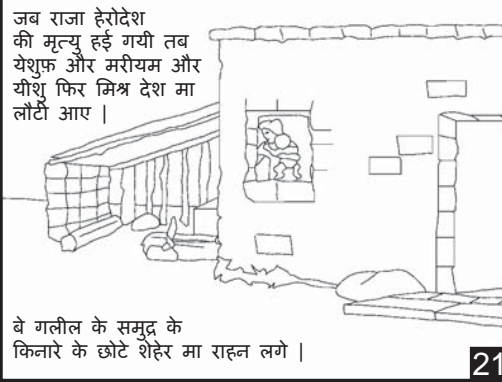 जब राजा हेरोदेश
की मृत्यु हई गयी तब
येशुफ़ और मरीयम और
यीशु फिर मिश्र देश मा
लौटी आए |
बे गलील के समुद्र के
किनारे के छोटे शेहेर मा राहन लगे |
21